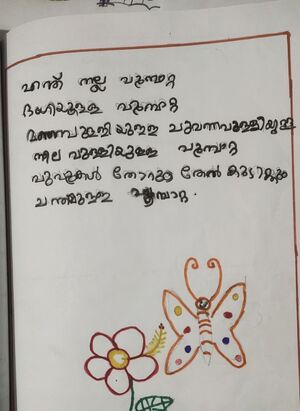 എന്ത് നല്ല പൂമ്പാറ്റ
ഭംഗിയുള്ള പൂമ്പാറ്റ
മഞ്ഞപുള്ളിയുള്ള ചുവന്നപുള്ളിയുള്ള
നീല പുള്ളിയുള്ള പൂമ്പാറ്റ
പൂവുകൾ തോറും തേൻ കുടിക്കും
ചന്തമുള്ള പൂമ്പാറ്റ.